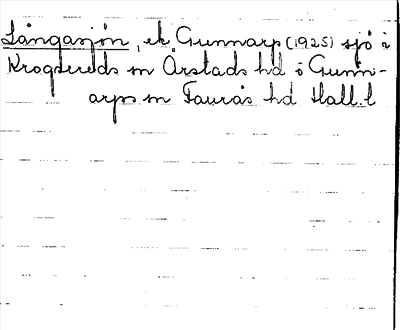 Långasjön, ek Gunnarp (1925) sjö i
Krogsereds sn Årstads hd o Gunn-
arps sn Faurås hd Hall. l